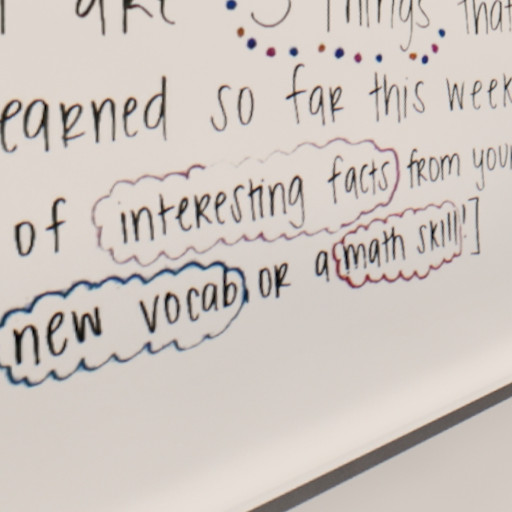 are 3 things that
earned so far this week
of interesting facts from your
new vocab, or a math skill!]